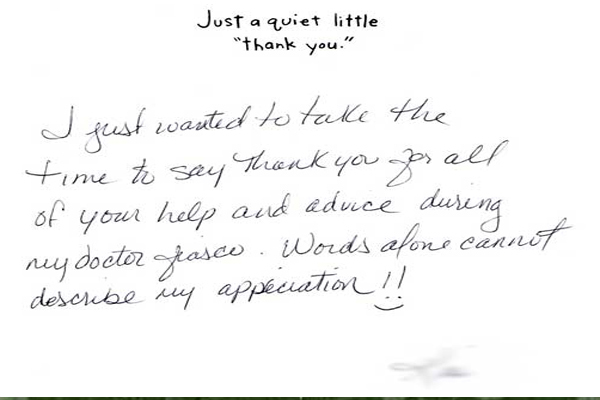 Just a quiet little
"thank you."
I just wanted to take the
time to say Thank you for all
of your help and advice during
my doctor fiasco. Words alone cannot
describe my appeciation!!